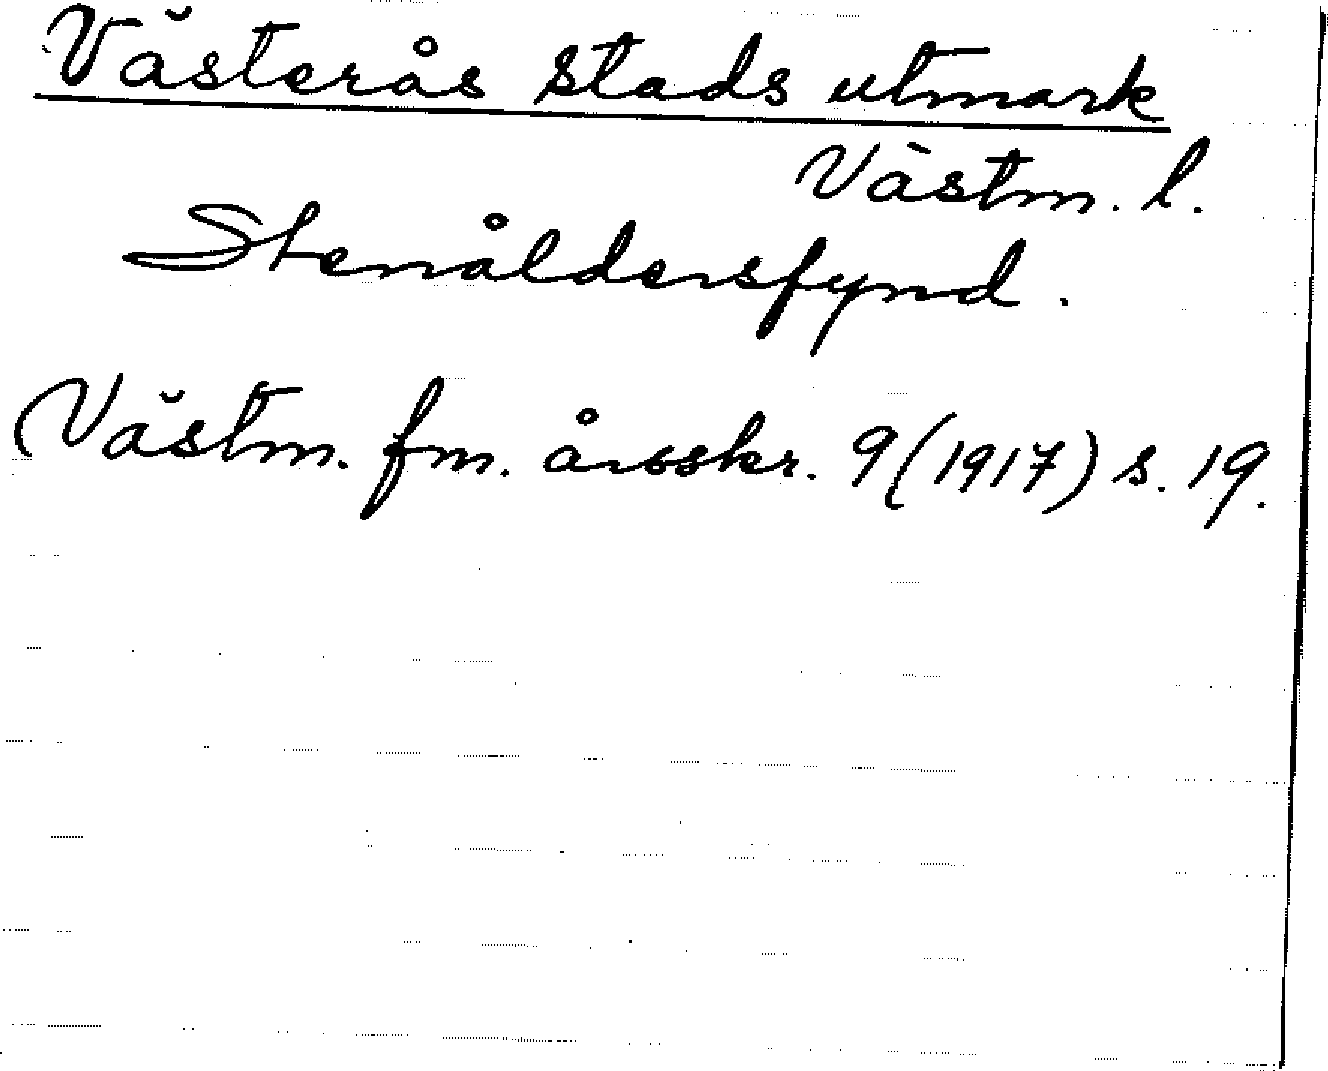 Västerås stads utmark
Västm. l.
Stenåldersfynd.
Västm. fm. årsskr. 9 (1917) s. 19.